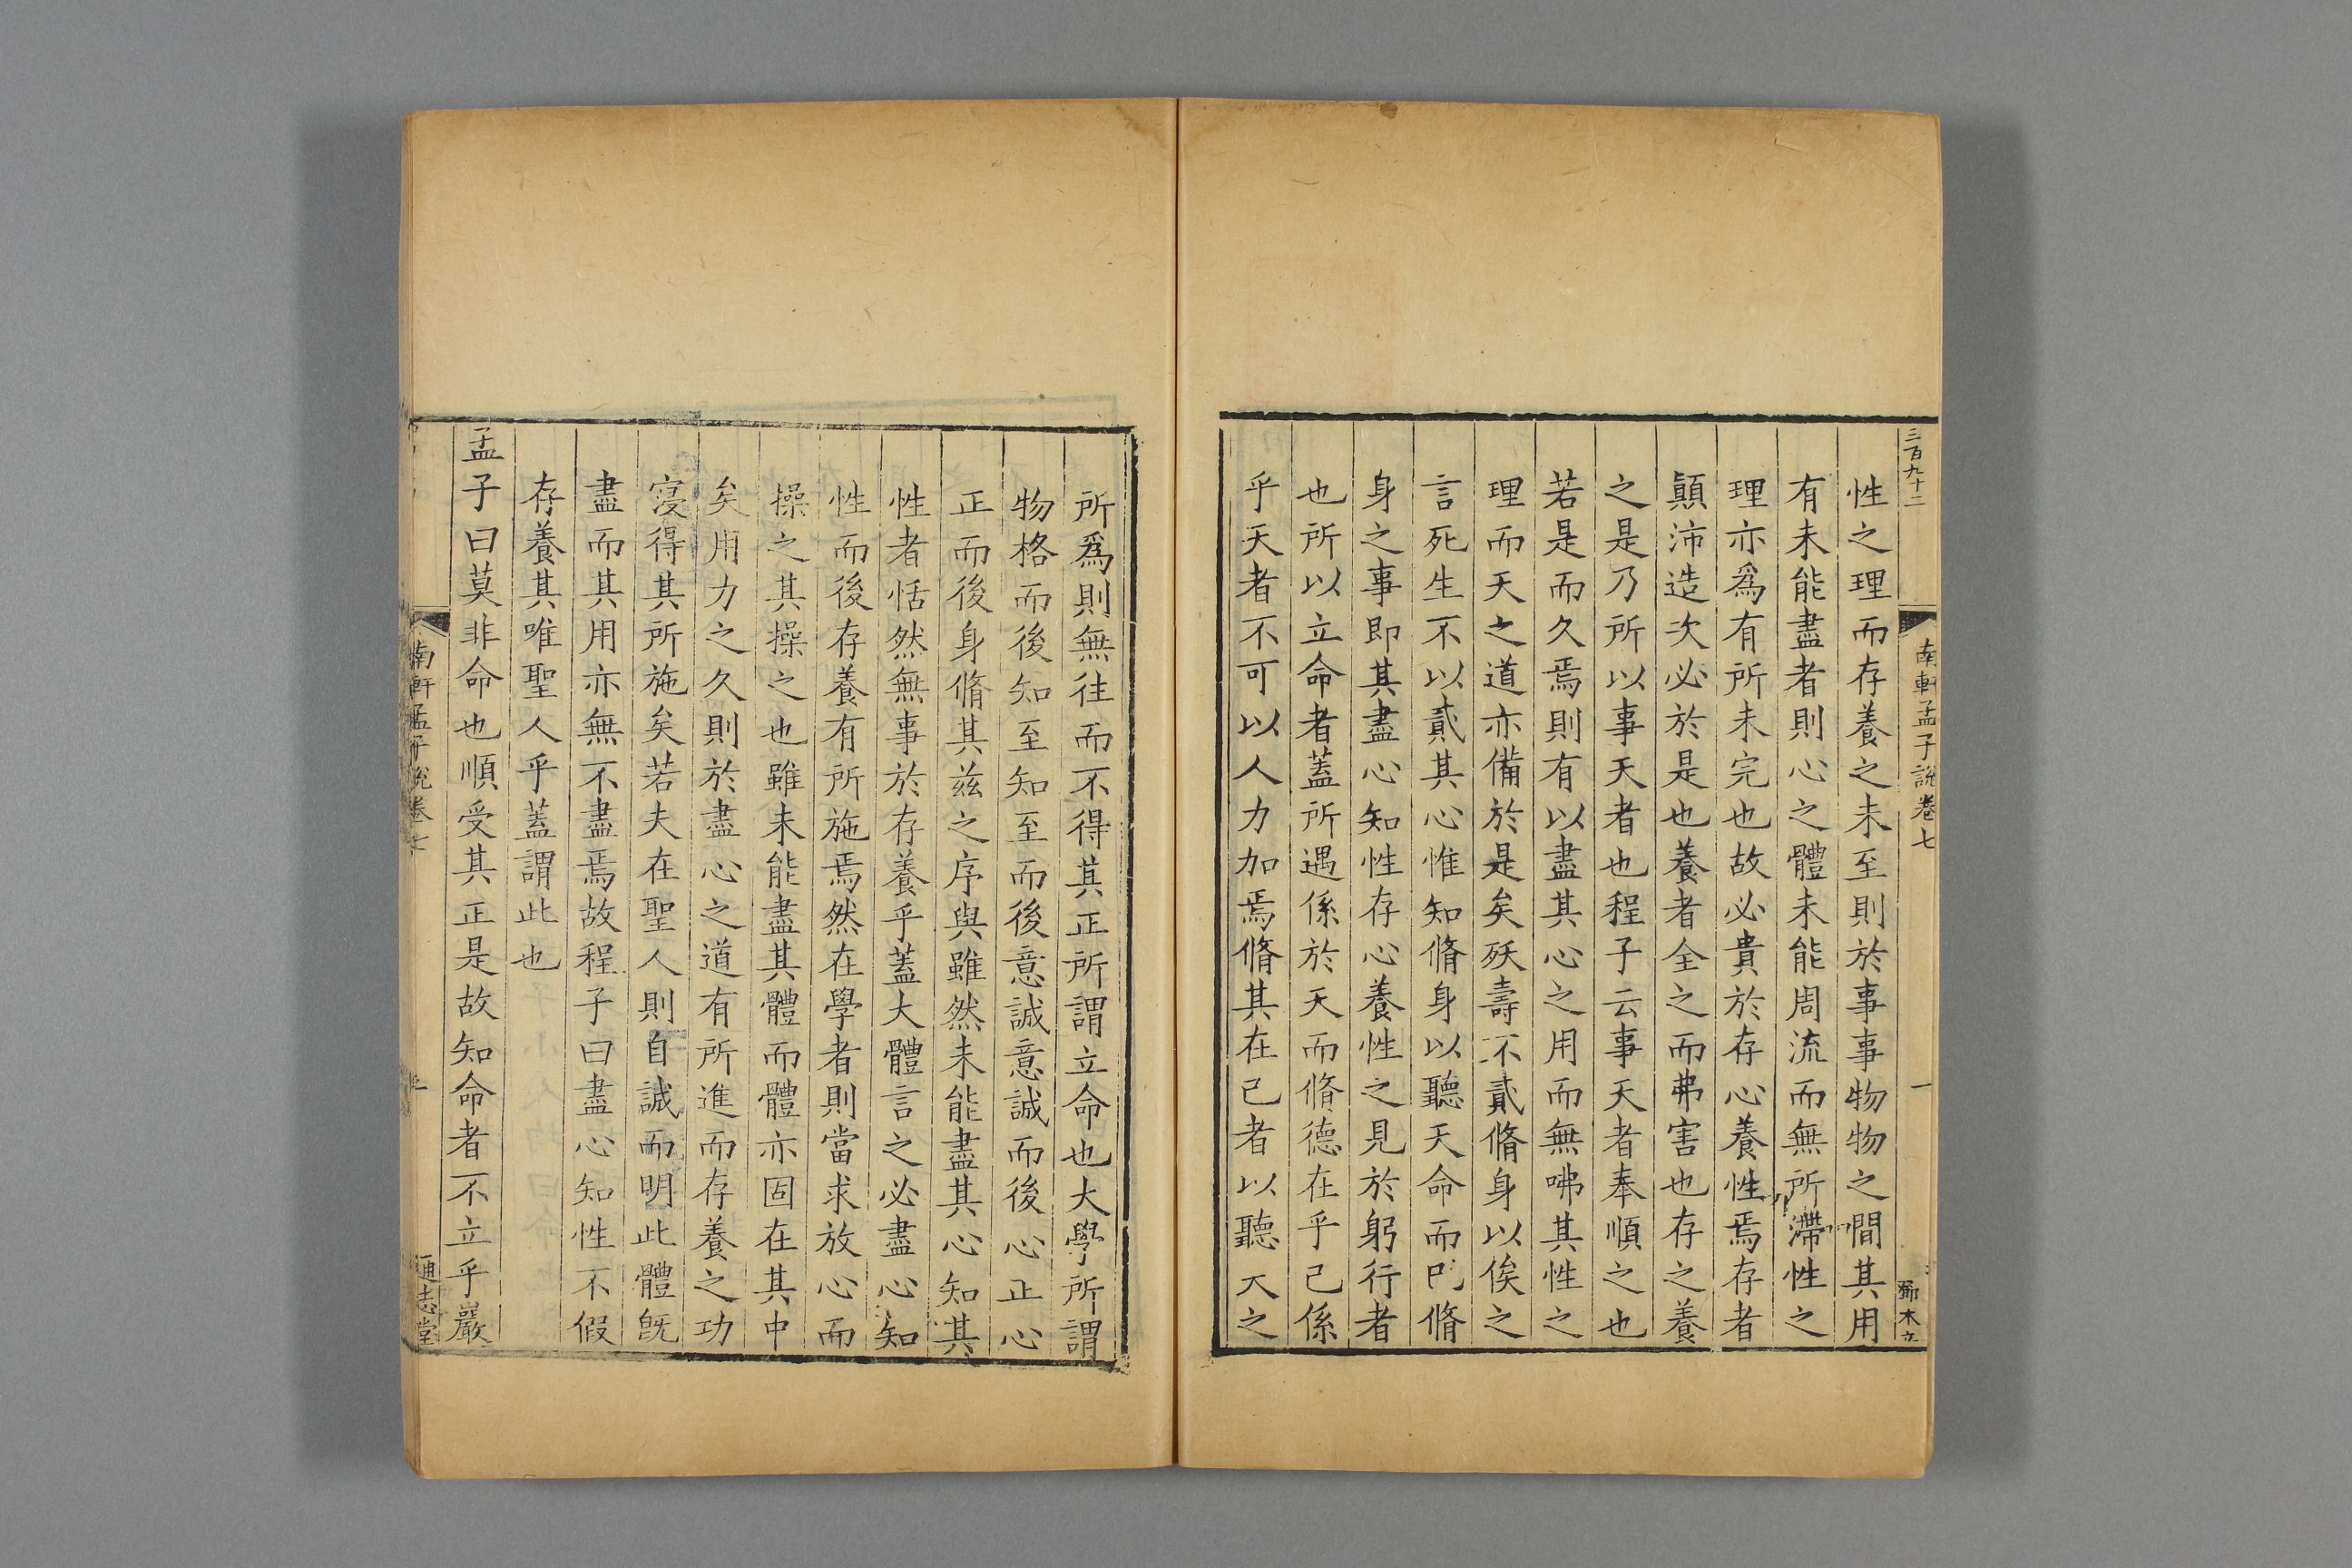 三百九十二
南軒孟子說卷七
一
性之理而存養之未至則於事事物物之間其用
有未能盡者則心之體未能周流而無所滯性之
理亦爲有所未完也故必貴於存心養性焉存者
顛沛造次必於是也養者全之而弗害也存之養
之是乃所以事天者也程子云事天者奉順之也
若是而久焉則有以盡其心之用而無咈其性之
理而天之道亦備於是矣殀壽不貳脩身以俟之
言死生不以貳其心惟知脩身以聽天命而已脩
身之事即其盡心知性存心養性之見於躬行者
也所以立命者蓋所遇係於天而脩德在乎己係
乎天者不可以人力加焉脩其在己者以聽天之
所爲則無往而不得其正所謂立命也大學所謂
物格而後知至知至而後意誠意誠而後心正心
正而後身脩其兹之序與雖然未能盡其心知其
性者恬然無事於存養乎蓋大體言之必盡心知
性而後存養有所施焉然在學者則當求放心而
操之其操之也雖未能盡其體而體亦固在其中
矣用力之久則於盡心之道有所進而存養之功
寖得其所施矣若夫在聖人則自誠而明此體旣
盡而其用亦無不盡焉故程子曰盡心知性不假
存養其唯聖人乎蓋謂此也
孟子曰莫非命也順受其正是故知命者不立乎巖
南軒孟子說卷七
通志堂